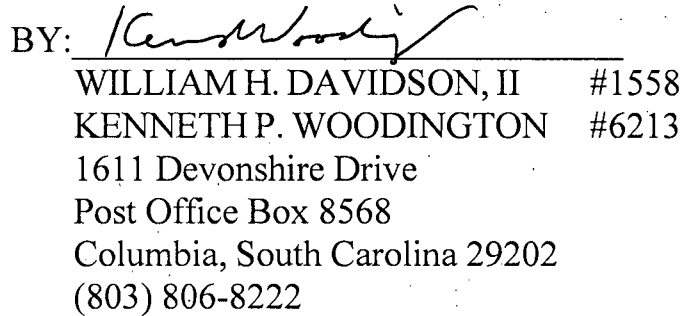 BY: Kenneth Woodington
WILLIAM H. DAVIDSON, II #1558
KENNETH P. WOODINGTON #6213
1611 Devonshire Drive
Post Office Box 8568
Columbia, South Carolina 29202
(803) 806-8222